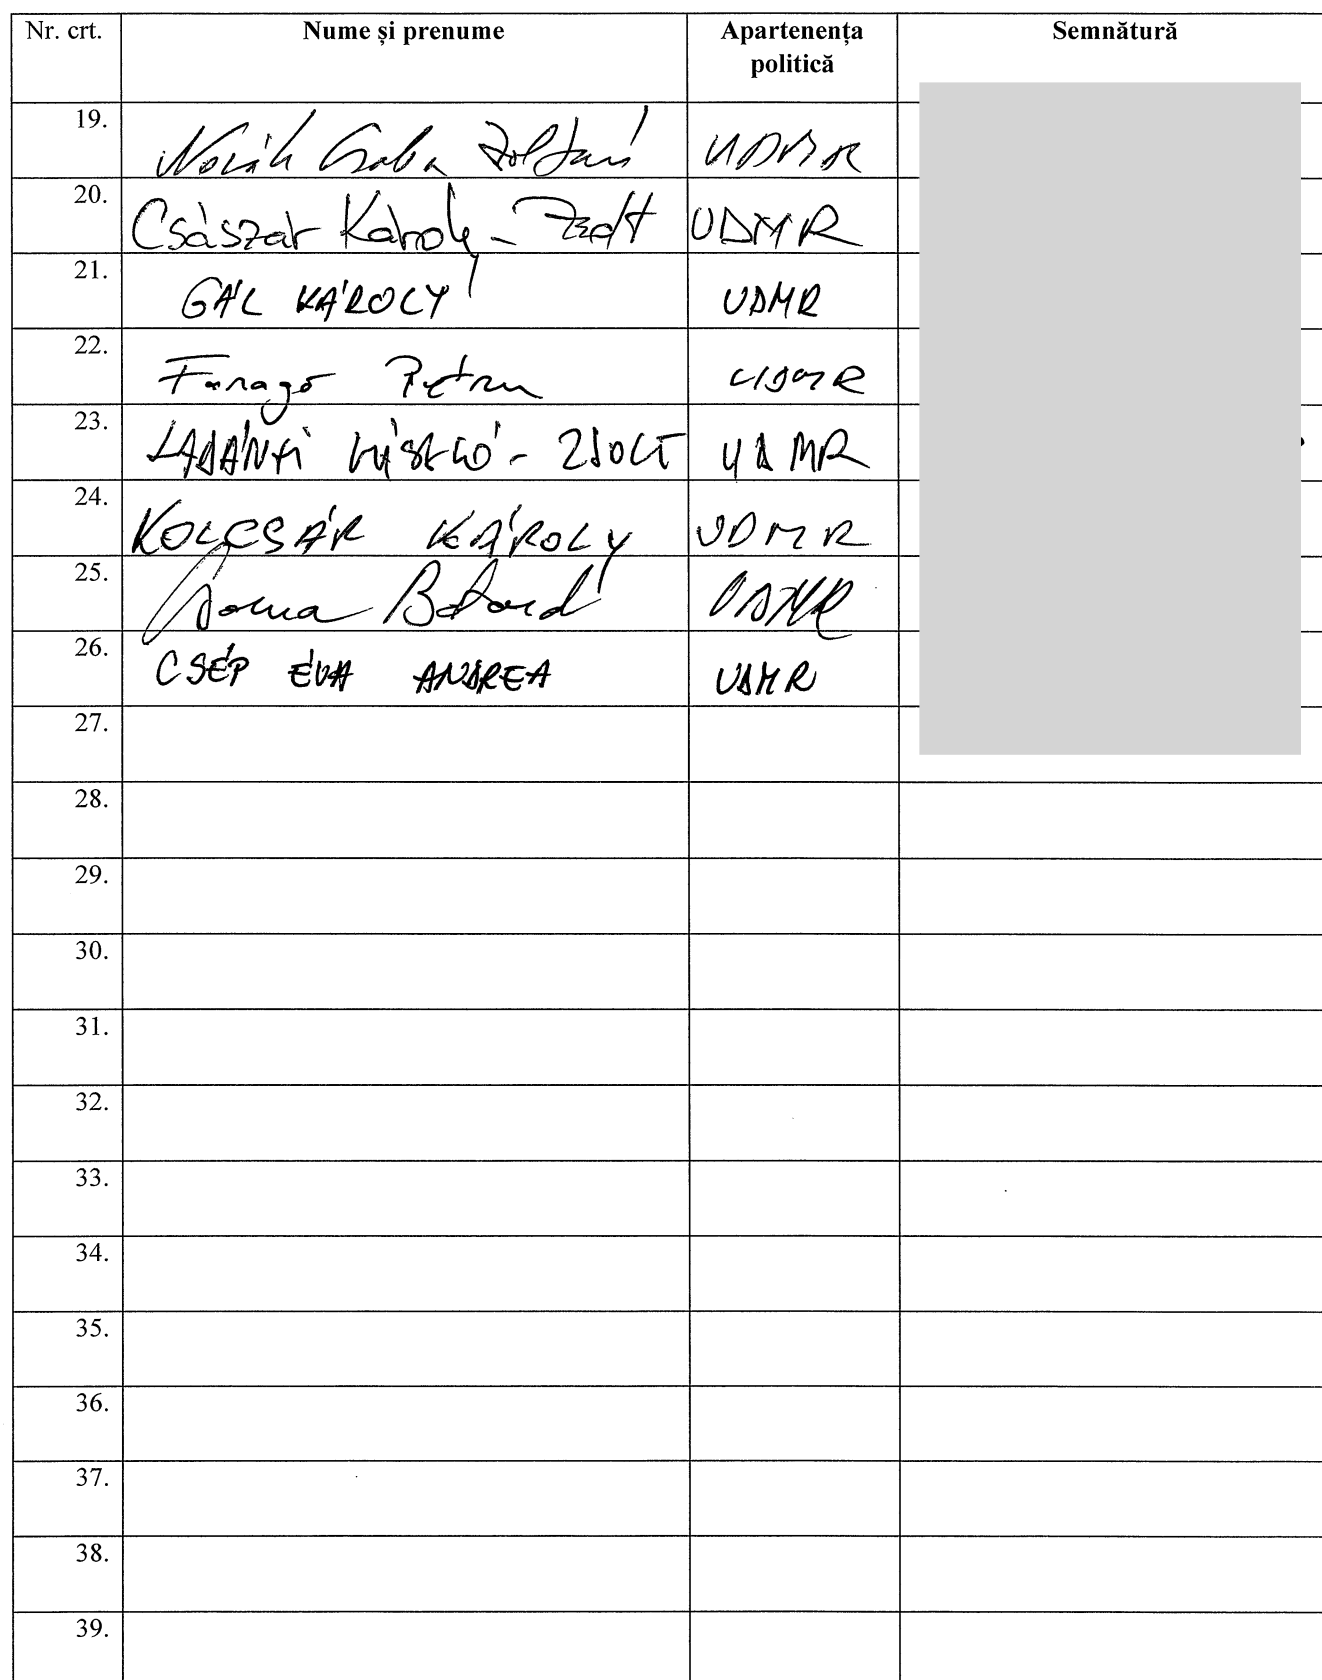 Nr. crt. Nume și prenume Apartenența politică Semnătură
19. Novák Csaba Zoltán UDMR
20. Császár Károly - Zsolt UDMR
21. GÁL KÁROLY UDMR
22. Faragó Petru UDMR
23. LADÁNYI LÁSZLÓ - ZSOLT UDMR
24. KOLCSÁR KÁROLY UDMR
25. Botond UDMR
26. CSÉP ÉVA ANDREA UDMR
27.
28.
29.
30.
31.
32.
33.
34.
35.
36.
37.
38.
39.